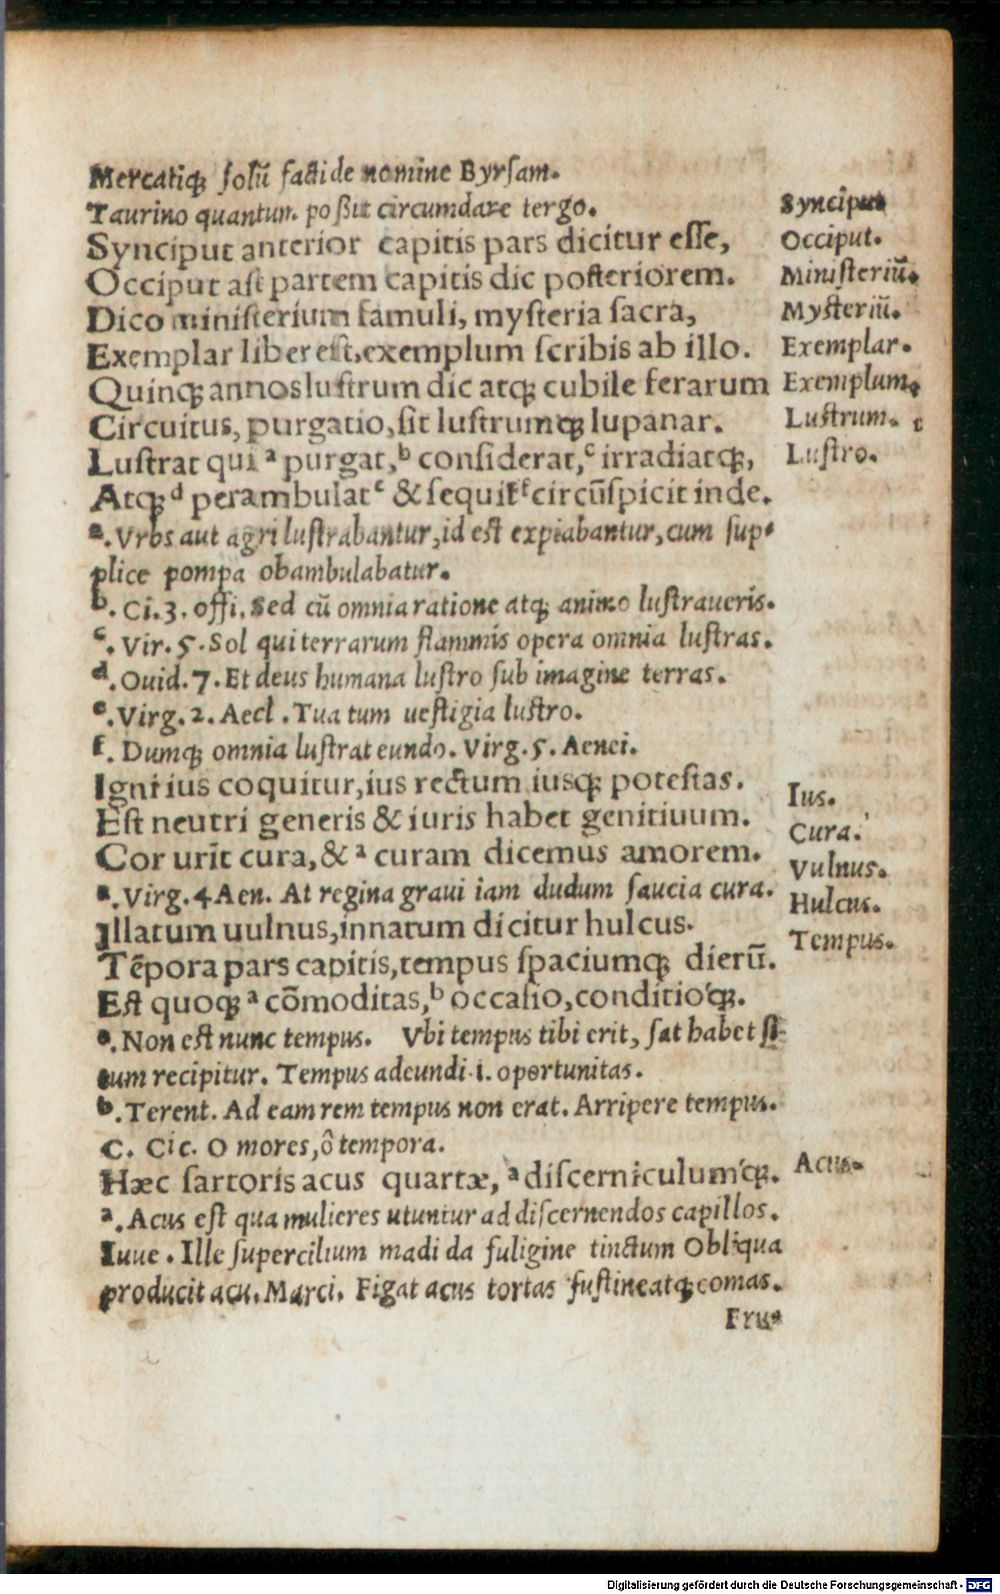 Mercatiq́; solū facti de nomine Byrsam.
Taurino quantum possit circumdare tergo.
Synciput anterior capitis pars dicitur esse, Synciput
Occiput ast partem capitis dic posteriorem. Occiput.
Dico ministerium famuli, mysteria sacra, Ministeriū.
Exemplar liber est, exemplum scribis ab illo. Mysteriū.
Quinq́; annos lustrum dic atq́; cubile ferarum Exemplar.
Circuitus, purgatio, sit lustrumq́; lupanar. Exemplum.
Lustrat qui ᵃ purgat, ᵇ considerat, ᶜ irradiatq́;, Lustrum.
Atq́; ᵈ perambulat ᵉ & sequit̄ ᶠ circūspicit inde. Lustro.
ᵃ. Vrbs aut agri lustrabantur, id est expiabantur, cum sup-
plice pompa obambulabatur.
ᵇ. Ci. 3. offi. Sed cū omnia ratione atq́; animo lustraueris.
ᶜ. Vir. 5. Sol qui terrarum flammis opera omnia lustras.
ᵈ. Ouid. 7. Et deus humana lustro sub imagine terras.
ᵉ. Virg. 2. Aecl. Tua tum uestigia lustro.
ᶠ. Dumq́; omnia lustrat eundo. Virg. 5. Aenei.
Igni ius coquitur, ius rectum iusq́; potestas. Ius.
Est neutri generis & iuris habet genitiuum. Cura.
Cor urit̄ cura, & ᵃ curam dicemus amorem. Vulnus.
ᵃ. Virg. 4 Aen. At regina graui iam dudum saucia cura. Hulcus.
Illatum uulnus, innatum dicitur hulcus. Tempus.
Tēpora pars capitis, tempus spaciumq́; dierū.
Est quoq́; ᵃ cōmoditas, ᵇ occasio, conditioq́;.
ᵃ. Non est nunc tempus. Vbi tempus tibi erit, sat habet si
tum recipitur. Tempus adeundi .i. oportunitas.
ᵇ. Terent. Ad eam rem tempus non erat. Arripere tempus.
C. Cic. O mores, ô tempora.
Hæc sartoris acus quartæ, ᵃ discerniculumq́;. Acus.
ᵃ. Acus est qua mulieres utuntur ad discernendos capillos.
Iuue. Ille supercilium madida fuligine tinctum Obliqua
producit acu. Marci. Figat acus tortas sustineatq́; comas.
Fru-
Digitalisierung gefördert durch die Deutsche Forschungsgemeinschaft - DFG